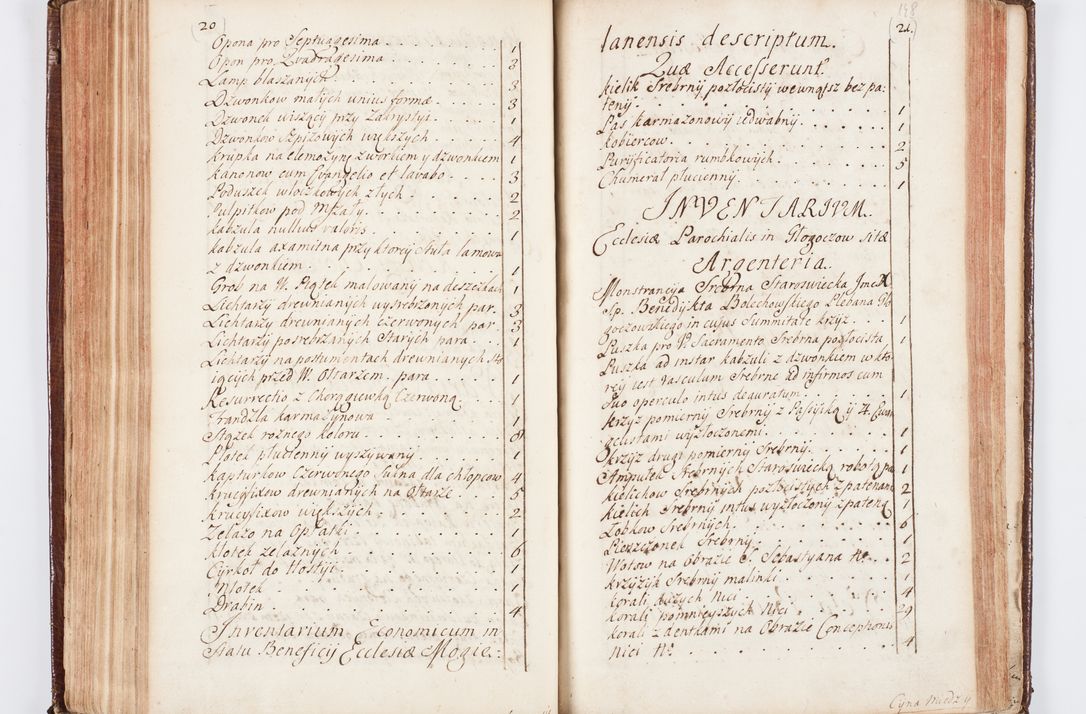 20
Opona pro Septuagesima . . . . 1
Opon pro Quadragesima . . . . 3
Lamp blaszanych . . . . 3
Dzwonkow małych unius formæ . . . . 3
Dzwonek wiszący przy Zakrystyi . . . . 1
Dzwonkow Szpizowych większych . . . . 4
Krupka na elemozynę z workiem y dzwonkiem 1
Kanonow cum Evangelio et lavabo . . . . 3
Poduszek włoczkowych złych . . . . 2
Pulpitkow pod Mszały . . . . 2
Kabzula nullius valoris . . . . 1
Kabzula axamitna przy ktorey Stuła lamowa
z dzwonkiem . . . . 1
Grob na W. Piątek malowany na deszczkach 1
Lichtarzy drewnianych wysrebrzonych par . 3
Lichtarzy drewnianych czerwonych par . 3
Lichtarzy posrebrzanych Starych para . . 1
Lichtarzy na postumentach drewnianych Sto
iących przed W. Ołtarzem . para . . . . 1
Resurrectio z Chorągiewką Czerwoną . . . . 1
Frandzla karmazynowa . . . . 1
Stązek roznego koloru . . . . 8
Płotek płucienny wyszywany . . . . 1
Kapturkow Czerwonego Sukna dla chłopcow 4
Krucyfixow drewnianych na Ołtarze . . . . 5
Krucyfixow większych . . . . 2
Zelazo na Opłatki . . . . 1
Kłotek zelaznych . . . . 6
Cyrkoł do Hostyi . . . . 1
Młotek . . . . 1
Drabin . . . . 4
Inventarium Economicum in
Statu Beneficij Ecclesiæ Mogie-
198
21.
lanensis descriptum.
Quæ Accesserunt.
Kielik Srebrny pozłocisty wewnątsz bez pa-
teny . . . . 1
Pas karmazonowy iedwabny . . . . 1
Kobiercow . . . . 2
Puryficatoria rumbkowych . . . . 5
Chumerał płucienny . . . . 1
INVENTARIUM.
Ecclesiæ Parochialis in Głogoczow sitæ
Argenteria.
Monstrancyja Srebrna Staroswiecka Jmc X
Sp. Benedykta Bolechowskiego Plebana Gło
goczowskiego in cujus Summitate krzyz . . . 1
Puszka pro Vo Sacramento Srebrna pozłocista 1
Puszka ad instar kabzuli z dzwonkiem w kto
rey iest Vasculum Srebrne ad infirmos cum
Suo operculo intus deauratum . . . . 1
Krzyz pomierny Srebrny z Passyiką y 4. Ewan
gelistami wyzłoconemi . . . . 1
Krzyz drugi pomierny Srebrny . . . . 1
Ampułek Srebrnych Staroswiecką robotą pa 1
Kielichow Srebrnych pozłocistych z patenami 2
Kielich Srebrny intus wyzłocony z pateną 1
Łobkow Srebrnych . . . . 6
Pierszczonek Srebrny . . . . 1
Wotow na Obrazie S. Sebastyana No . . 2
Krzyzyk Srebrny malinki . . . . 1
Korali duzych nici . . . . 4
Korali pomnieyszych nici . . . . 29
Korali z dentkami na Obrazie Conceptionis
nici No . . . . 4
Cyna Miedz y